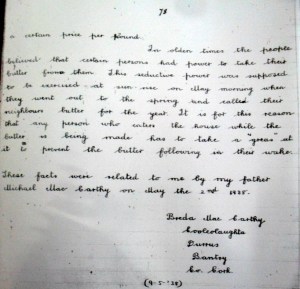 78
a certain price per pound.
In olden times the people
believed that certain persons had power to take their
butter from them. This seductive power was supposed
to be exercised at sun rise on May morning when
they went out to the spring and called their
neighbours butter for the year. It is for this reason
that any person who enters the house while the
butter is being made has to take a "greas" at
it to prevent the butter following in their wake.
These facts were related to me by my father
Michael Mac Carthy on May the 2nd 1938.
Breda Mac Carthy
Coolcolaughta
Durrus
Bantry
Co. Cork.
(9-5-'38)